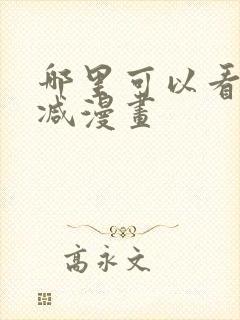 哪里可以看
减漫畫
高永文